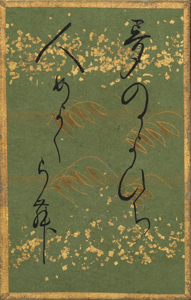 夢のかよひち
人めよくらむ